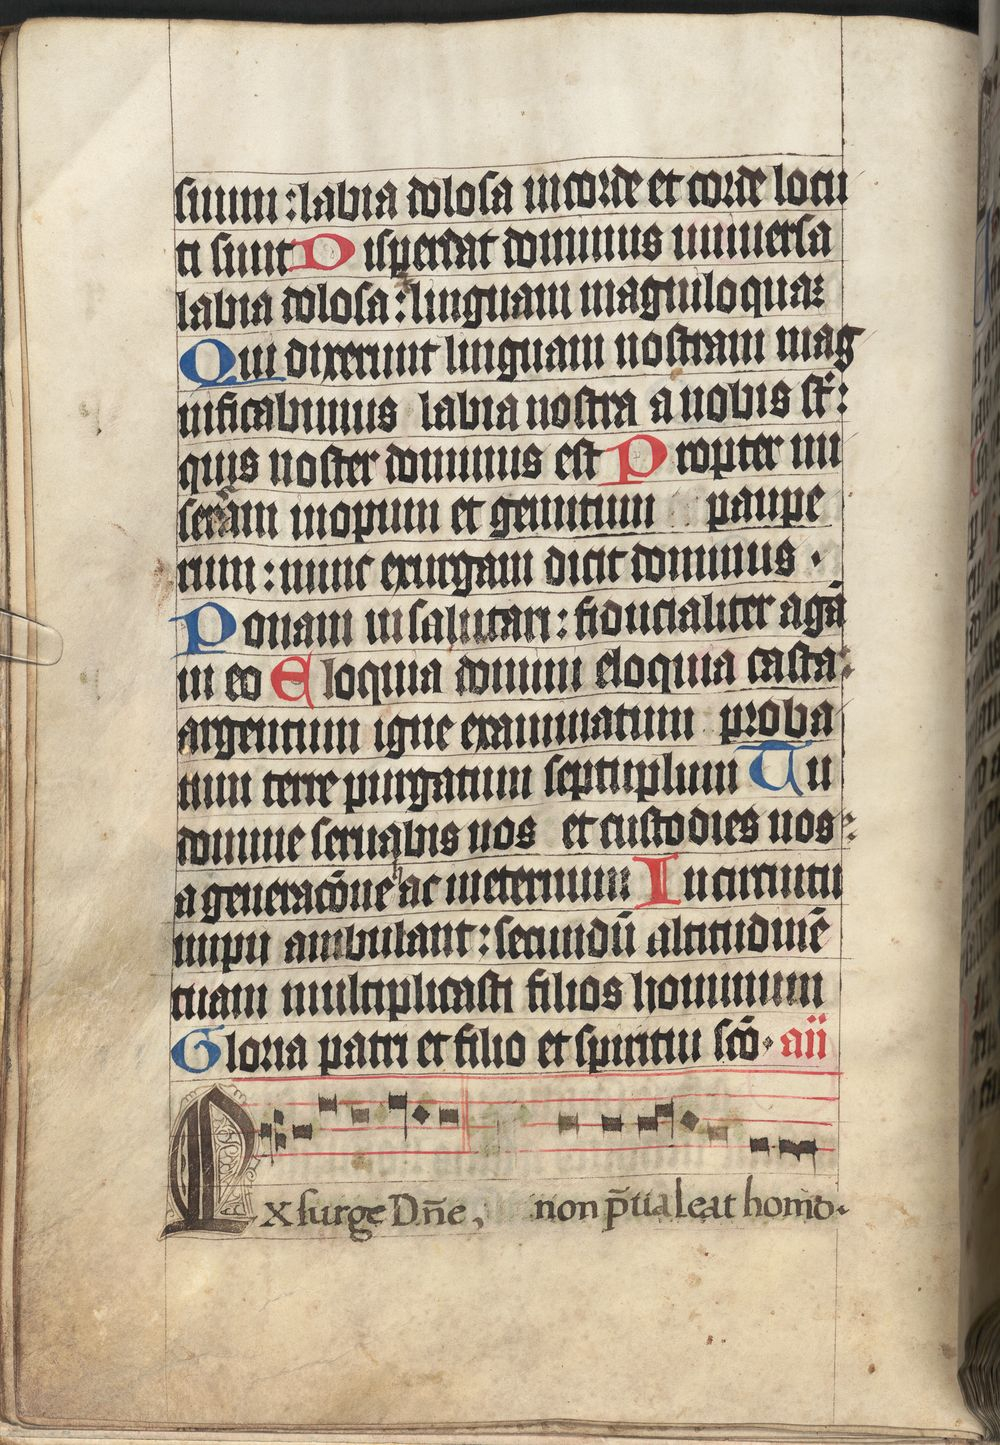 suum : labia dolosa in corde et corde locu
ti sunt Disperdat dominus universa
labia dolosa : linguam magniloqua:
Qui dixerunt linguam nostram mag
nificabimus labia nostra a nobis st̄ :
quis noster dominus est Propter mi
seriam inopum et gemitum paupe
rum : nunc exurgam dicit dominus .
Ponam in salutari : fiducialiter agā
in eo Eloquia domini eloquia casta :
argentum igne examinatum proba
tum terre purgatum septuplum Tu
domine servabis nos et custodies nos :
a generacōne hac in eternum In circuitu
impii ambulant : secundū altitudinē
tuam multiplicasti filios hominum
Gloria patri et filio et spiritui scō . aii
Exsurge Dn̄e , non p̄ualeat homo .